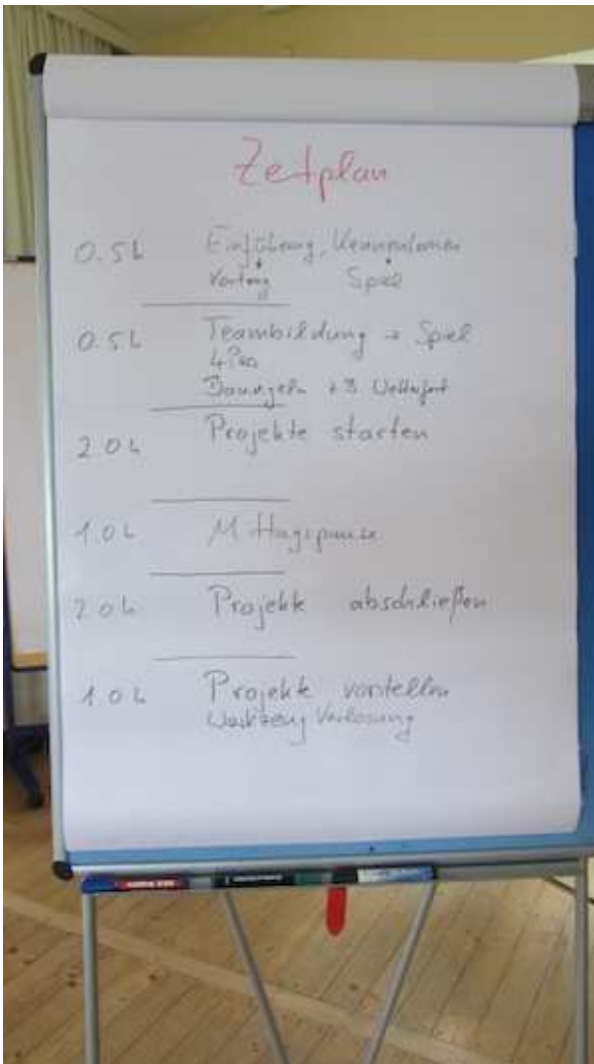 Zeitplan
0.5h Einführung, Kennenlernen
Vortrag Spiel
0.5h Teambildung → Spiel
Bauregeln
2.0h Projekte starten
1.0h Mittagspause
2.0h Projekte abschließen
1.0h Projekte vorstellen
Werkzeug Verlosung